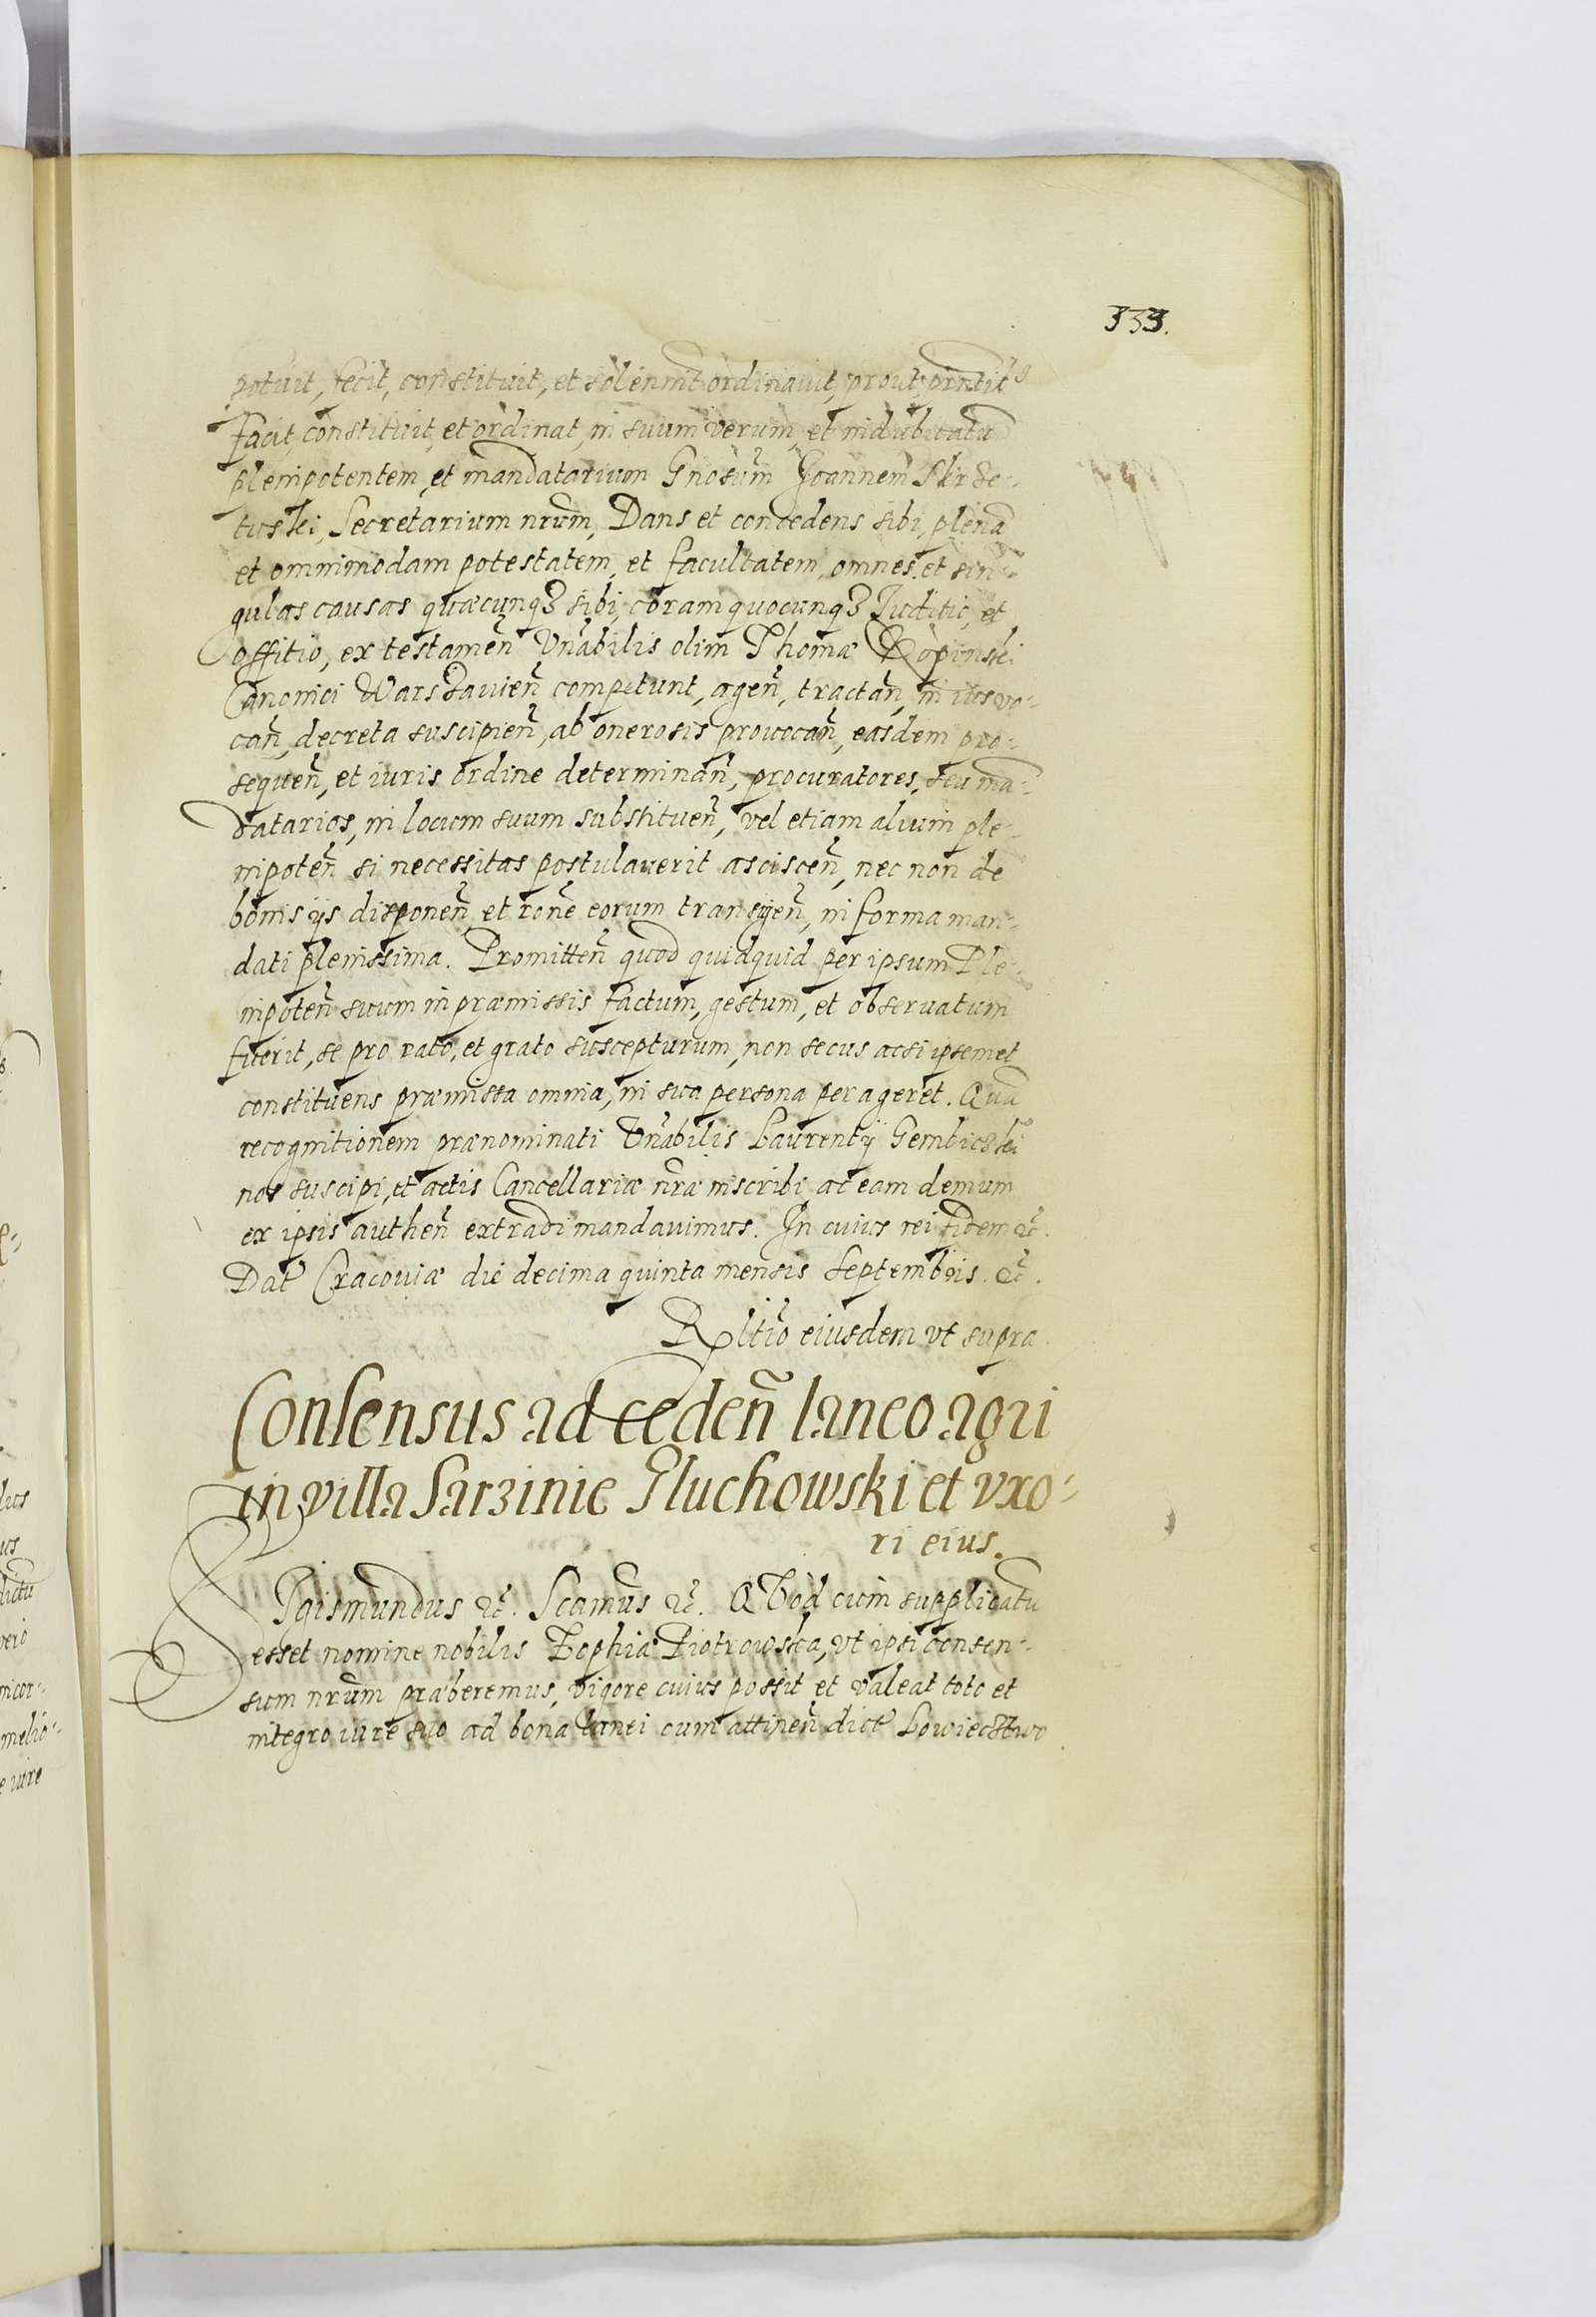 333.
potuit, fecit, constituit, et solenniť ordinauit, prout pñtib9
facit, constituit, et ordinat, in suum verum, et indubitatū
plenipotentem, et mandatarium Gnosum Joannem Skrze-
tuski, Secretarium nrum, Dans et concedens sibi, plenā
et omnimodam potestatem, et facultatem, omnes et sin-
gulas causas quæcunqȝ sibi, coram quocunqȝ Iuditio, et
offitio, ex testamen̄ Vn̄abilis olim Thomæ Ropinski
Canonici Warszauien̄ competunt, agen̄, tractan̄, in ius vo-
can̄, decreta suscipien̄, ab onerosis prouocan̄, easdem pro-
sequen̄, et iuris ordine determinan̄, procuratores, seu mā-
datarios, in locum suum substituen̄, vel etiam alium ple-
nipoten̄ si necessitas postulauerit asciscen̄, nec non de
bonis ijs disponen̄ et rone eorum transigen̄, in forma man-
dati plenissima. Promitten̄ quod quidquid per ipsum Ple-
nipoten̄ suum in præmissis factum, gestum, et obseruatum
fuerit, se pro rato, et grato suscepturum, non secus acsi ipsemet
constituens præmissa omnia, in sua persona perageret. Quā
recognitionem prænominati Vn̄abilis Laurentij Gembiczki
nos suscipi, et actis Cancellariæ nræ inscribi, ac eam demum
ex ipsis authen̄ extradi mandauimus. In cuius rei fidem etc.
Dat Cracouiæ die decima quinta mensis Septembris. etc.
Rltio eiusdem vt supra
Consensus ad ceden̄ laneo agri
in villa Sarzinie Gluchowski et vxo-
ri eius.
SIgismundus etc. Scamus etc. QVod cum supplicatū
esset nomine nobilis Zophia Piotrowska, vt ipsi consen-
sum nrum præberemus, vigore cuius possit et valeat toto et
integro iure suo ad bona lanei cum attinen̄ dict Lowieczstwo